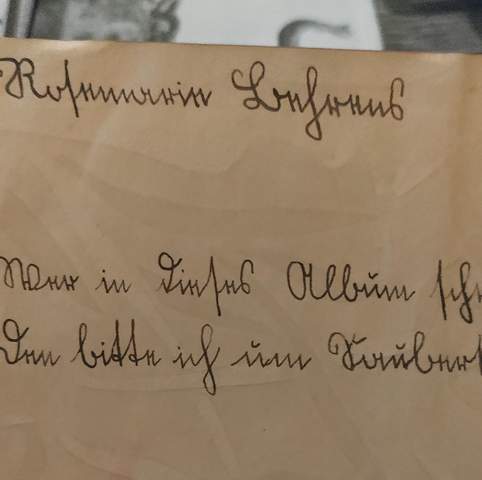 Rosemarie Behrens
Wer in dieses Album sch
Den bitte ich um Sauberk